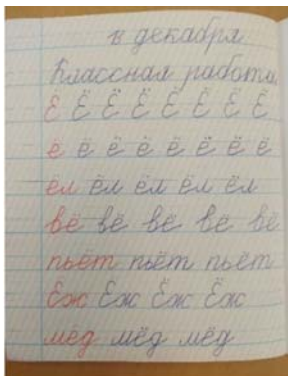 декабря
Классная работа
Ё Ё Ё Ё Ё Ё Ё Ё
ё ё ё ё ё ё ё ё
ёл ёл ёл ёл ёл
вё вё вё вё вё
пьёт пьёт пьёт
Ёж Ёж Ёж Ёж
мёд мёд мёд